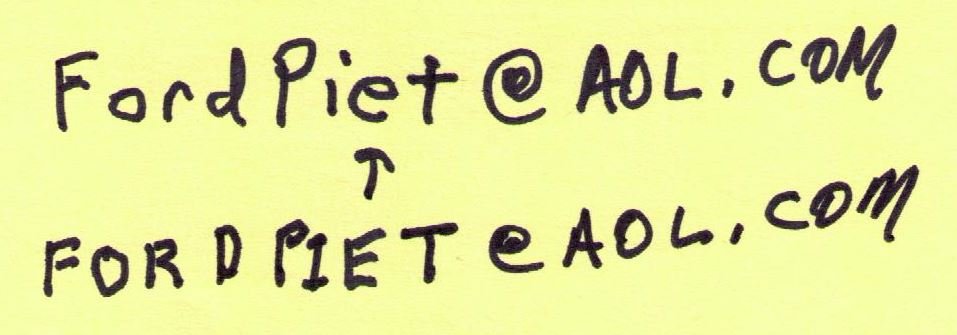 FordPiet@AOL.COM
↑
FORDPIET@AOL.COM